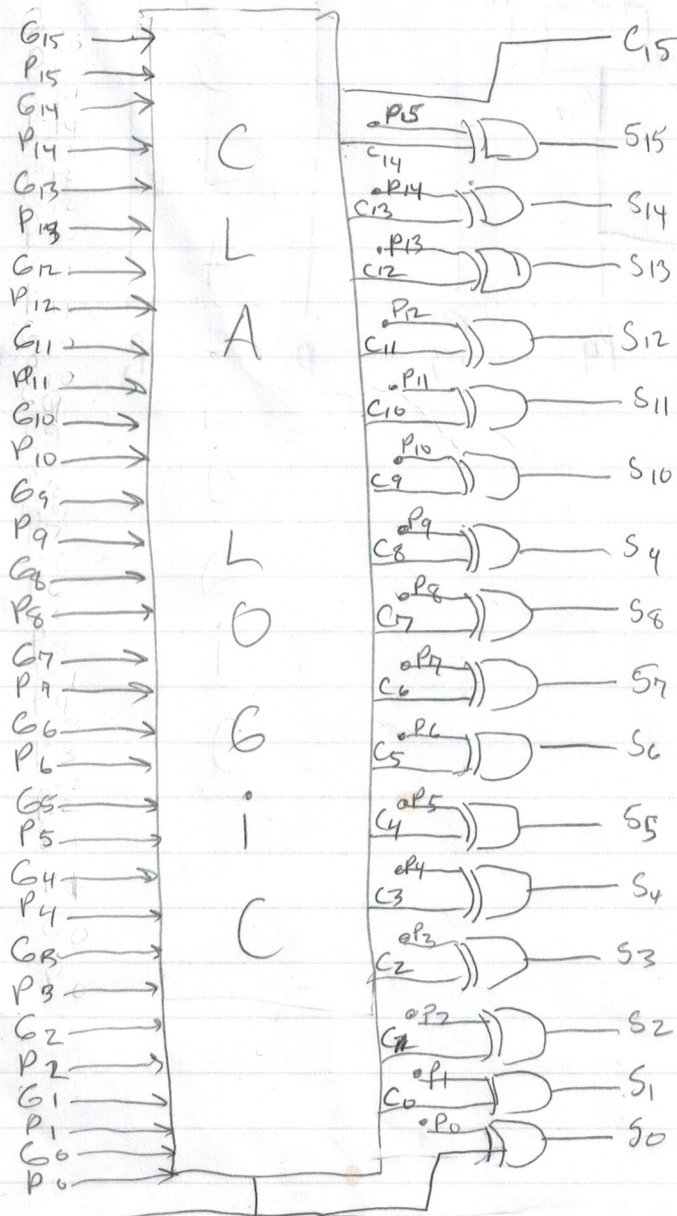 G15
P15
G14
P14
G13
P13
G12
P12
G11
P11
G10
P10
G9
P9
G8
P8
G7
P7
G6
P6
G5
P5
G4
P4
G3
P3
G2
P2
G1
P1
G0
P0
C
L
A
L
O
G
i
C
C15
P15
C14
S15
P14
C13
S14
P13
C12
S13
P12
C11
S12
P11
C10
S11
P10
C9
S10
P9
C8
S9
P8
C7
S8
P7
C6
S7
P6
C5
S6
P5
C4
S5
P4
C3
S4
P3
C2
S3
P2
C1
S2
P1
C0
S1
P0
S0